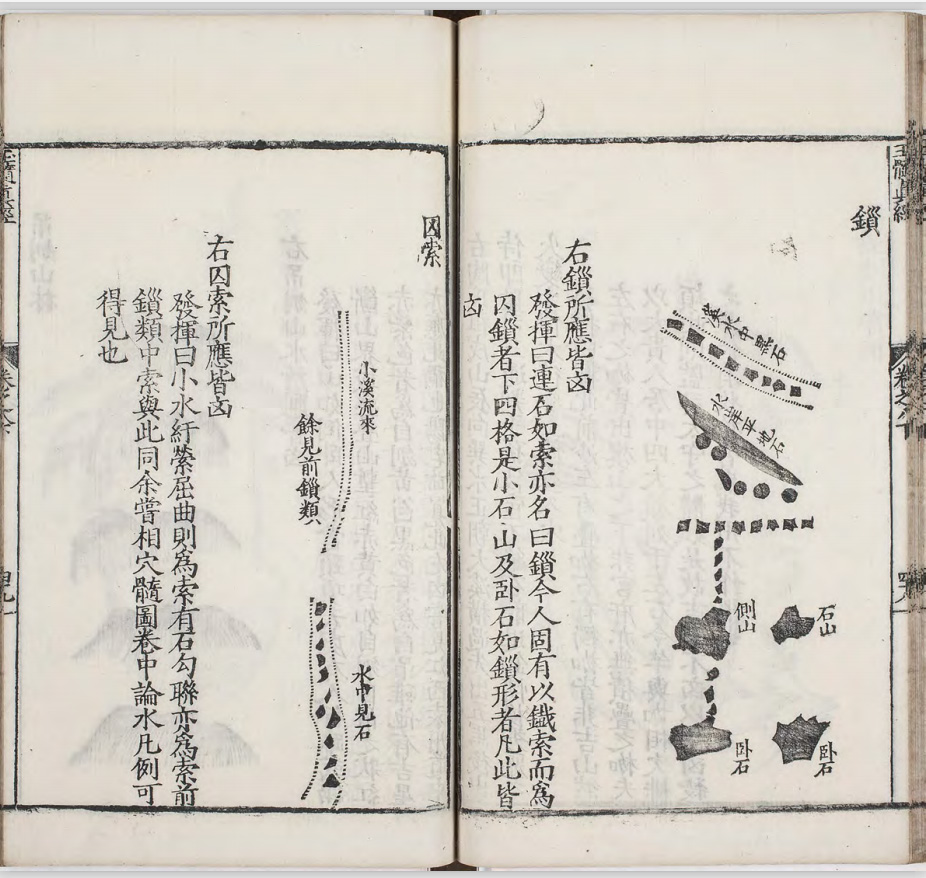 玉髓真經
卷之六
鎖
溪水中㸃石
水岸平地石
石山
側山
卧石
卧石
右鎖所應皆凶
發揮曰連石如索亦名曰鎖今人固有以鐵索而爲
囚鎖者下四格是小石山及卧石如鎖形者凡此皆
凶
囚索
小溪流來
餘見前鎖類
水中見石
右囚索所應皆凶
發揮曰小水紆縈屈曲則爲索有石勾聯亦爲索前
鎖類中索與此同余嘗相穴髓圖卷中論水凡例可
得見也
玉髓真經